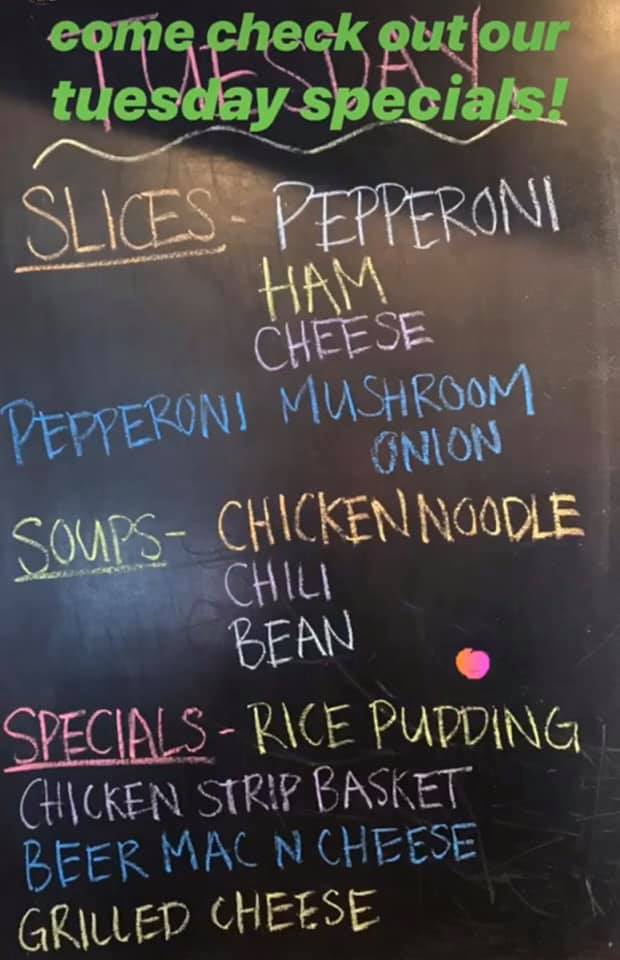 come check out our
tuesday specials!
TUESDAY
SLICES - PEPPERONI
HAM
CHEESE
PEPPERONI MUSHROOM
ONION
SOUPS - CHICKEN NOODLE
CHILI
BEAN
SPECIALS - RICE PUDDING
CHICKEN STRIP BASKET
BEER MAC N CHEESE
GRILLED CHEESE